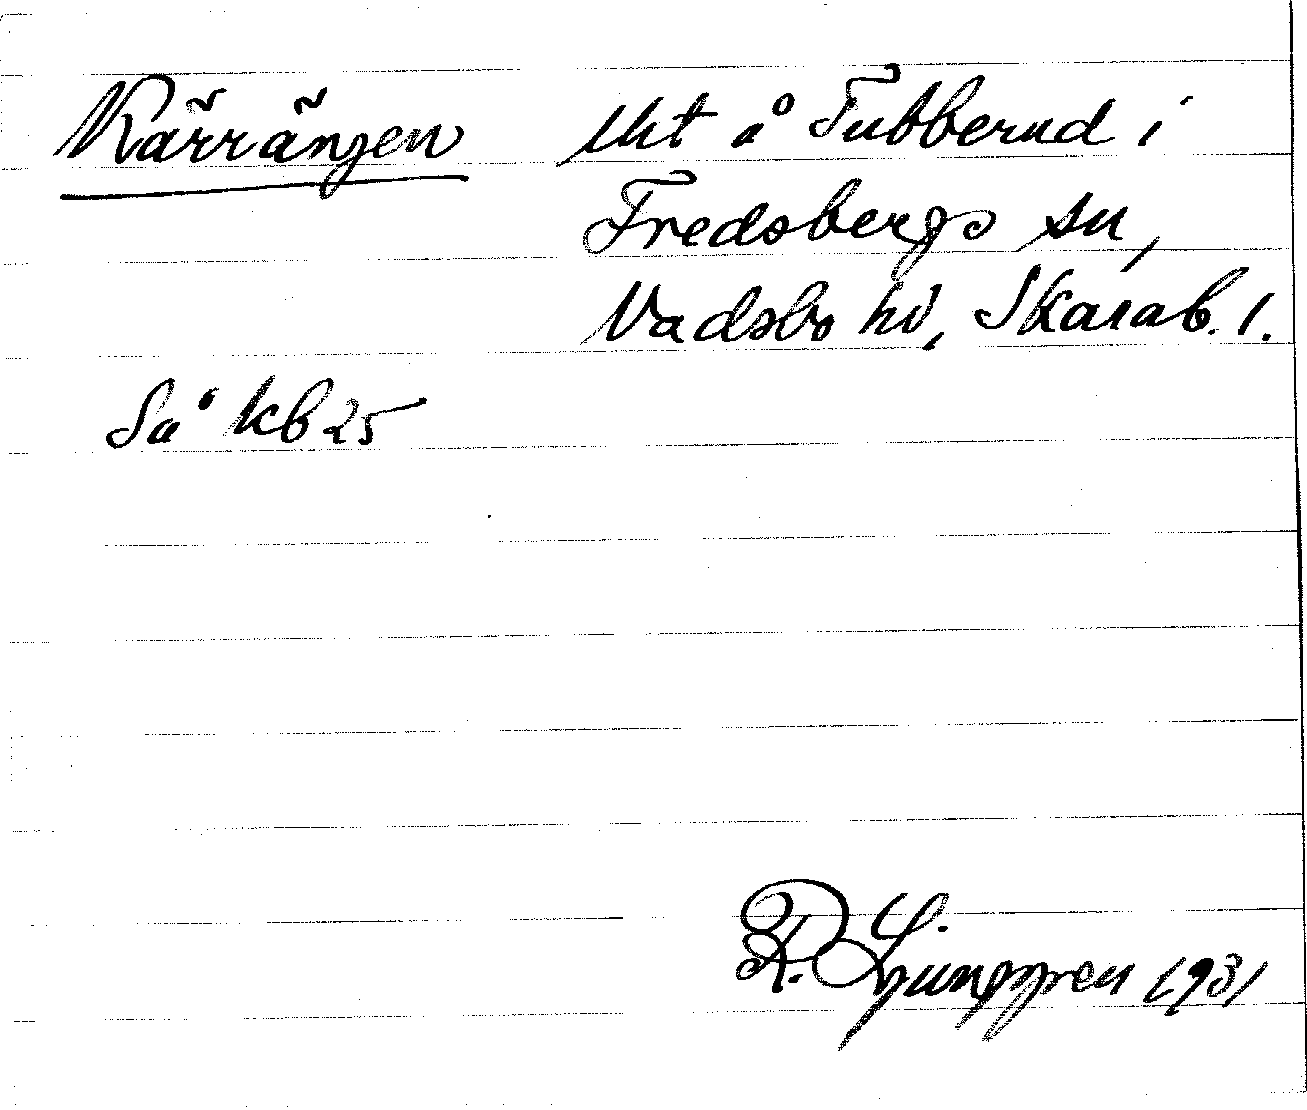 Kärrängen Uht å Tubberud i
Fredsbergs sn,
Vadsbo hd, Skarab. l.
Så kb 25
R. Ljunggren 1931